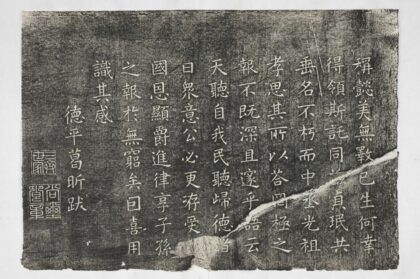 稱懿美無斁已生何幸
得領斯託同於貞珉共
垂名不朽而中丞光祖
孝思其所以荅罔極之
報不既深且邃乎語云
天聽自我民聽歸德
日衆意公必更游受
國恩顯爵進律享子孫
之報於無窮矣因喜用
識其感
德平葛昕跋